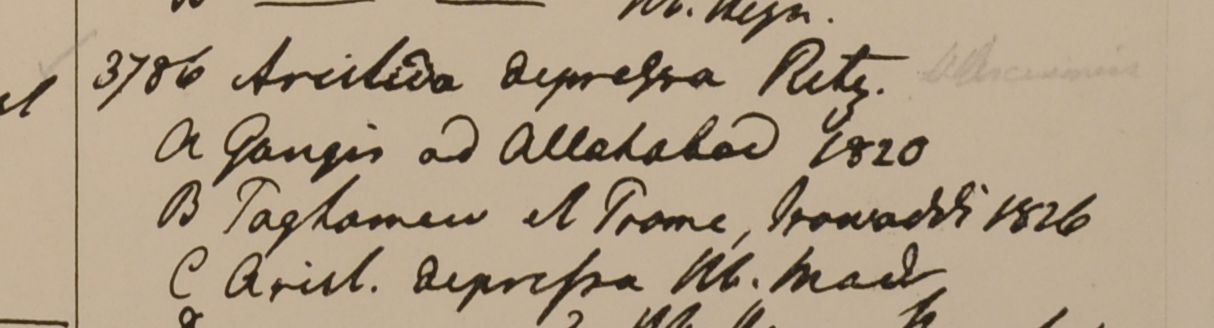 Hb. Heyn.
3786 Aristida depressa Retz.
A Gangis ad Allahabad 1820
B Taghamew et Prome, Irawaddi 1826
C Arist. depressa Hb. Madr